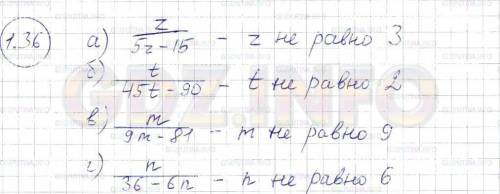 1.36 а) z/(5z-15) - z не равно 3
б) t/(45t-90) - t не равно 2
в) m/(9m-81) - m не равно 9
г) n/(36-6n) - n не равно 6
GDZ.INFO